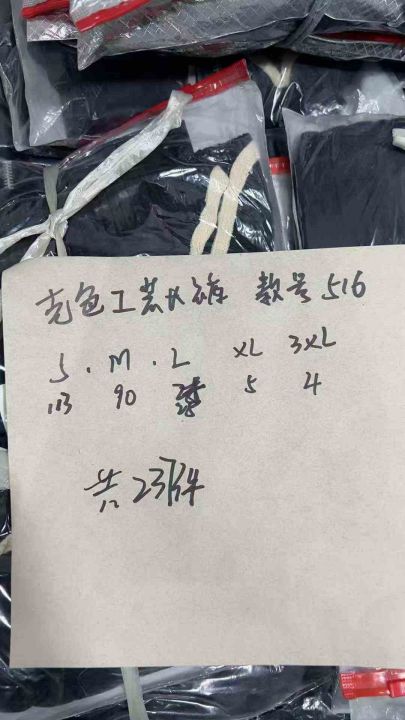 克色工装长裤 款号516
S . M . L XL 3XL
113 90 25 5 4
共237件